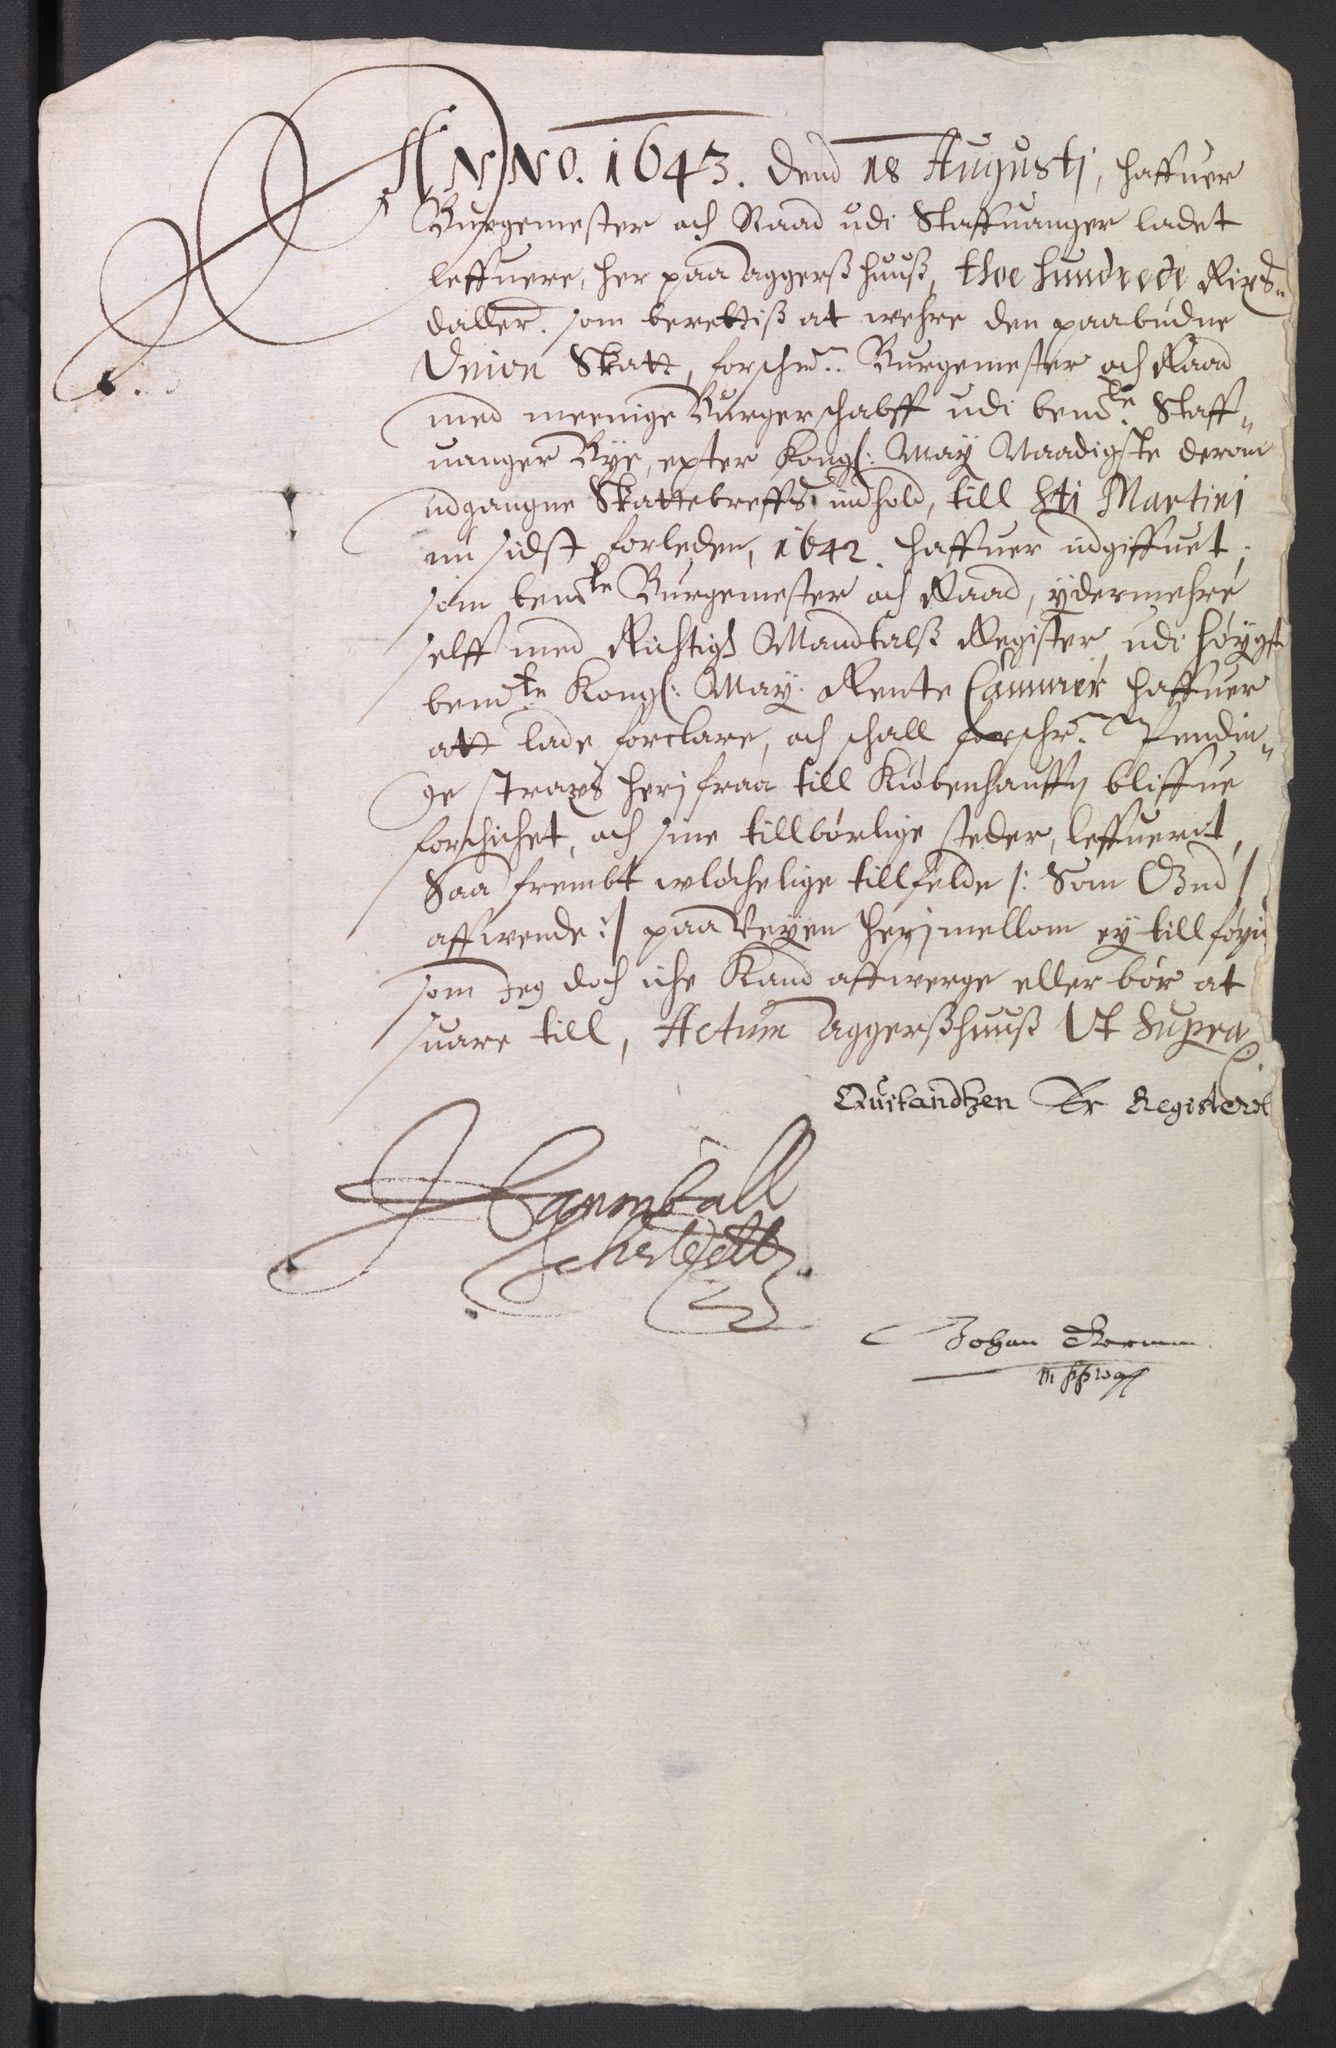 Anno. 1643. Dend 18 Augustj, haffuer
Burgemester och Raad udi Staffuanger ladet
leffuere, her paa Aggerßhuuß, thoe hundrede Rixs-
daller. som berettiß at wehre den paabudne
Union Skatt, forschr.ne Burgemester och Raad
med meenige Burgerschabff udi bemelte Staff-
uanger Bye, epter Kongl: May Naadigste derom
udgangne Skattebreffs indhold, till Sti Martini
nu sidst forleden, 1642. haffuer udgiffuet,
som bemte Burgemester och Raad, ydermehre
self med Richtig Mandtalß Register, udi høygst
bemte Kongl: May. Rente Cammer haffuer
att lade forclare, och schall forschr.ne Pendin-
ge strax herifraa till Kiøbenhauffn bliffue
forschichet, och sine tillbørlige steder, leffuerit,
Saa frembt wløchelige tillfelde /: Som Gud
affwende :/ paa Veyen herjmellom ey tillføyis
som Jeg doch iche Kand affwerge eller bør at
suare till, Actum Aggerßhuuß Ut Supra.
Quitandtzen Er Registerit
Hanniball
Sehestedtt
Johan
mppria